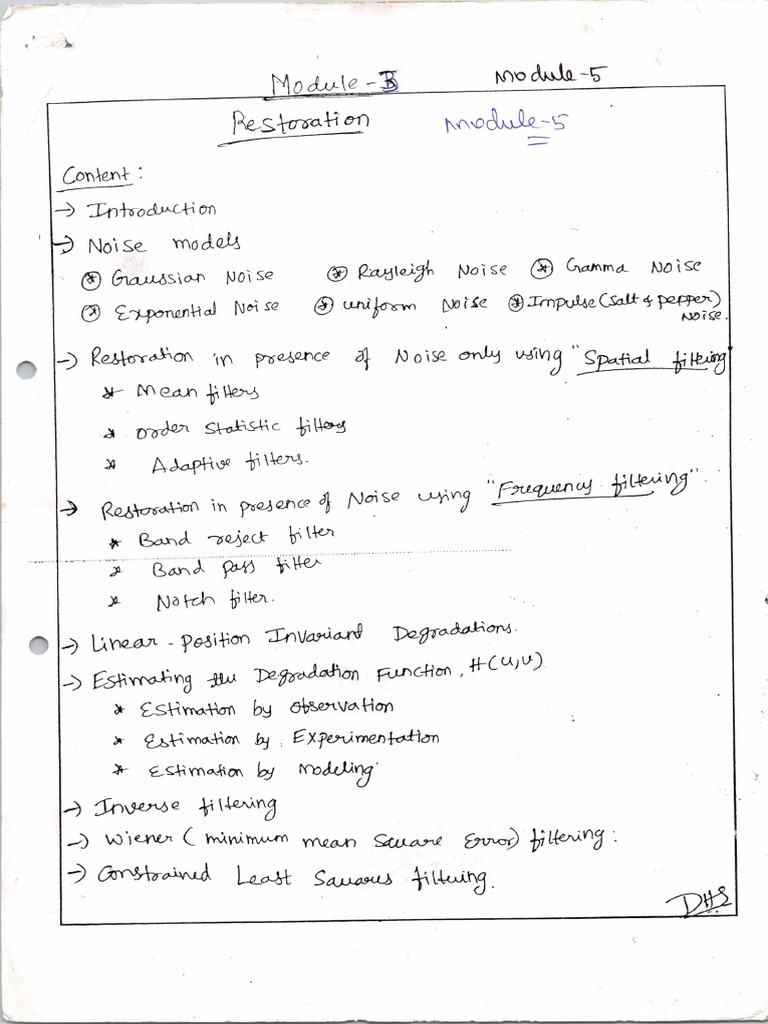 Module-3 Module-5
Restoration Module-5
Content:
→ Introduction
→ Noise models
* Gaussian Noise * Rayleigh Noise * Gamma Noise
* Exponential Noise * uniform Noise * Impulse (salt & pepper) Noise.
→ Restoration in presence of Noise only using "Spatial filtering
* Mean filters
* Order Statistic filters
* Adaptive filters.
→ Restoration in presence of Noise using "Frequency filtering".
* Band reject filter
* Band pass filter
* Notch filter.
→ Linear-position Invariant Degradations.
→ Estimating the Degradation Function, H(u,v)
* Estimation by observation
* Estimation by Experimentation
* Estimation by modeling
→ Inverse filtering
→ Wiener (minimum mean Square Error) filtering:
→ Constrained Least Squares filtering.